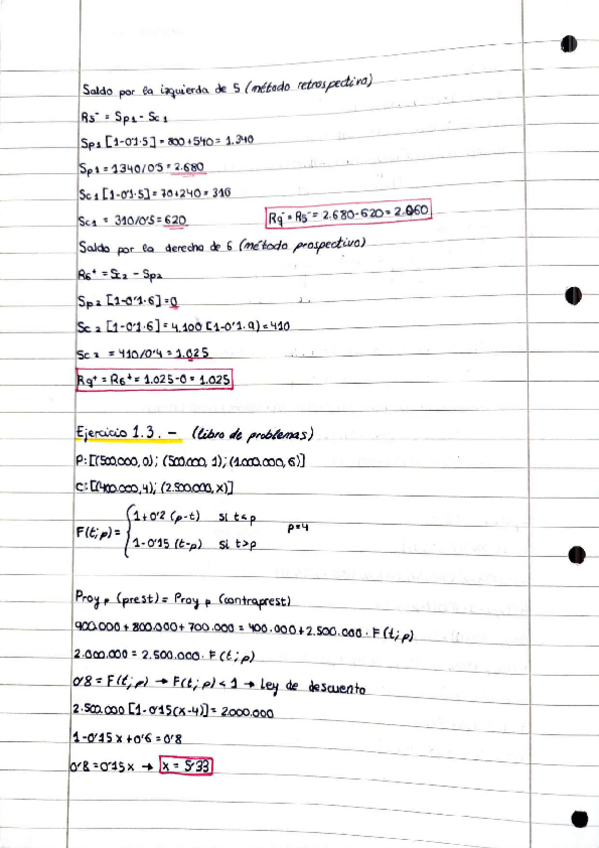 Saldo por la izquierda de 5 (método retrospectivo)
R5⁻ = Sp1 - Sc1
Sp1 [1-0'1·5] = 800+540 = 1.340
Sp1 = 1340/0'5 = 2.680
Sc1 [1-0'1·5] = 70+240 = 310
Sc1 = 310/0'5 = 620
R9⁻ = R5⁻ = 2.680-620 = 2.060
Saldo por la derecha de 6 (método prospectivo)
R6⁺ = Sc2 - Sp2
Sp2 [1-0'1·6] = 0
Sc2 [1-0'1·6] = 4.100 [1-0'1·9] = 410
Sc2 = 410/0'4 = 1.025
R9⁺ = R6⁺ = 1.025-0 = 1.025
Ejercicio 1.3.- (libro de problemas)
P: [(500.000, 0); (500.000, 1); (1.000.000, 6)]
C: [(400.000, 4); (2.500.000, x)]
1+0'2 (p-t) si t<p
F(t;p) = { p=4
1-0'15 (t-p) si t>p
Proy p (prest) = Proy p (contraprest)
900.000 + 800.000 + 700.000 = 400.000 + 2.500.000 · F(t;p)
2.000.000 = 2.500.000 · F(t;p)
0'8 = F(t;p) → F(t;p) < 1 → Ley de descuento
2.500.000 [1-0'15(x-4)] = 2000.000
1-0'15x + 0'6 = 0'8
0'8 = 0'15x → x = 5'33